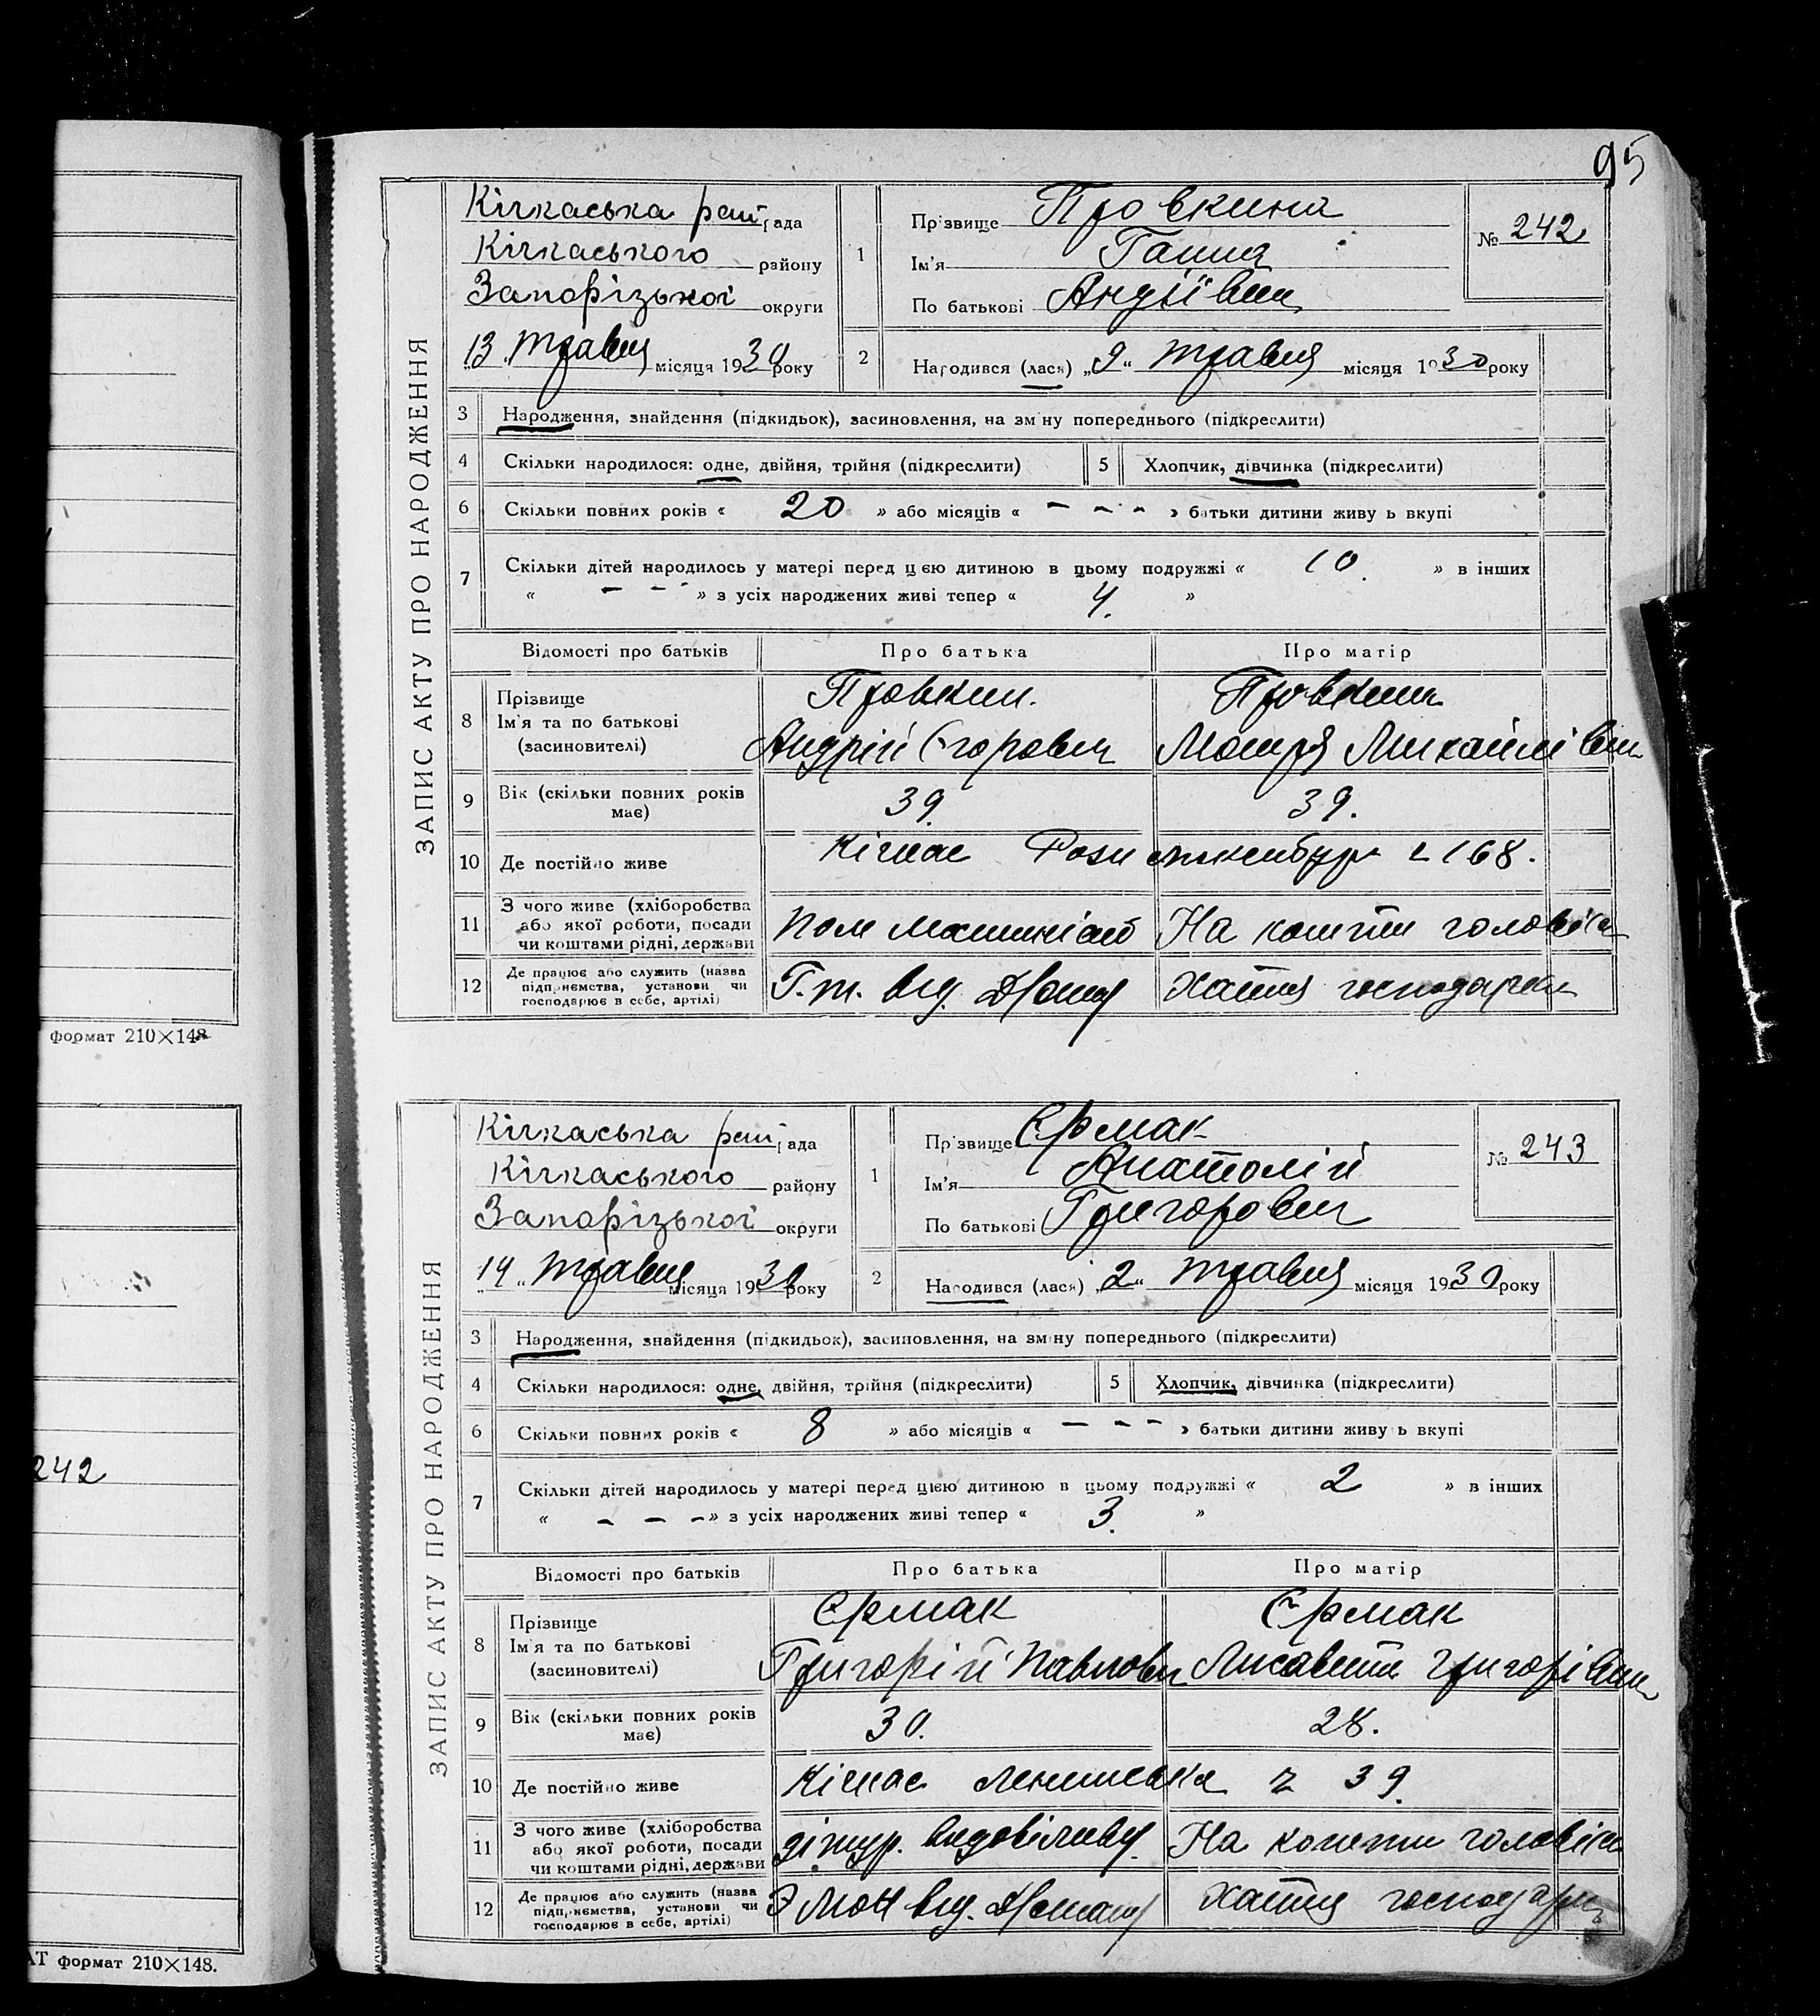 95
ЗАПИС АКТУ ПРО НАРОДЖЕННЯ
Кічкаська рай рада
Кічкаського району
Запорізької округи
„13" травня місяця 1930 року
1
Прізвище Провкина
Ім'я Ганна
По батькові Андріївна
№ 242
2
Народився (лася) „9" травня місяця 1930 року
3 Народження, знайдення (підкидьок), засиновлення, на зміну попереднього (підкреслити)
4 Скільки народилося: одне, двійня, трійня (підкреслити)
5 Хлопчик, дівчинка (підкреслити)
6 Скільки повних років « 20 » або місяців « – – – » батьки дитини живуть вкупі
7 Скільки дітей народилось у матері перед цією дитиною в цьому подружжі « 10. » в інших
« – – – » з усіх народжених живі тепер « 4. »
Відомості про батьків Про батька Про матір
8 Прізвище Провкин. Провкина
Ім'я та по батькові Андрій Єгорович Мотря Михайлівна
(засиновителі)
9 Вік (скільки повних років має) 39. 39.
10 Де постійно живе Кічкас 168.
11 З чого живе (хліборобства або якої роботи, посади чи коштами рідні, держави Пом машиніст На кошти чоловіка
12 Де працює або служить (назва підприємства, установи чи господарює в себе, артілі) Г.т. від. Хатня господарка
ЗАПИС АКТУ ПРО НАРОДЖЕННЯ
Кічкаська рай рада
Кічкаського району
Запорізької округи
„14" травня місяця 1930 року
1
Прізвище Єрмак
Ім'я Анатолій
По батькові Григорович
№ 243
2
Народився (лася) „2" травня місяця 1930 року
3 Народження, знайдення (підкидьок), засиновлення, на зміну попереднього (підкреслити)
4 Скільки народилося: одне, двійня, трійня (підкреслити)
5 Хлопчик, дівчинка (підкреслити)
6 Скільки повних років « 8 » або місяців « – – – » батьки дитини живуть вкупі
7 Скільки дітей народилось у матері перед цією дитиною в цьому подружжі « 2 » в інших
« – – – » з усіх народжених живі тепер « 3. »
Відомості про батьків Про батька Про матір
8 Прізвище Єрмак Єрмак
Ім'я та по батькові Григорій Павлович Лисавета Григорівна
(засиновителі)
9 Вік (скільки повних років має) 30. 28.
10 Де постійно живе Кічкас Ленинська 39.
11 З чого живе (хліборобства або якої роботи, посади чи коштами рідні, держави На кошти чоловіка
12 Де працює або служить (назва підприємства, установи чи господарює в себе, артілі) від. Хатня господарка
формат 210×148
242
АТ формат 210×148.